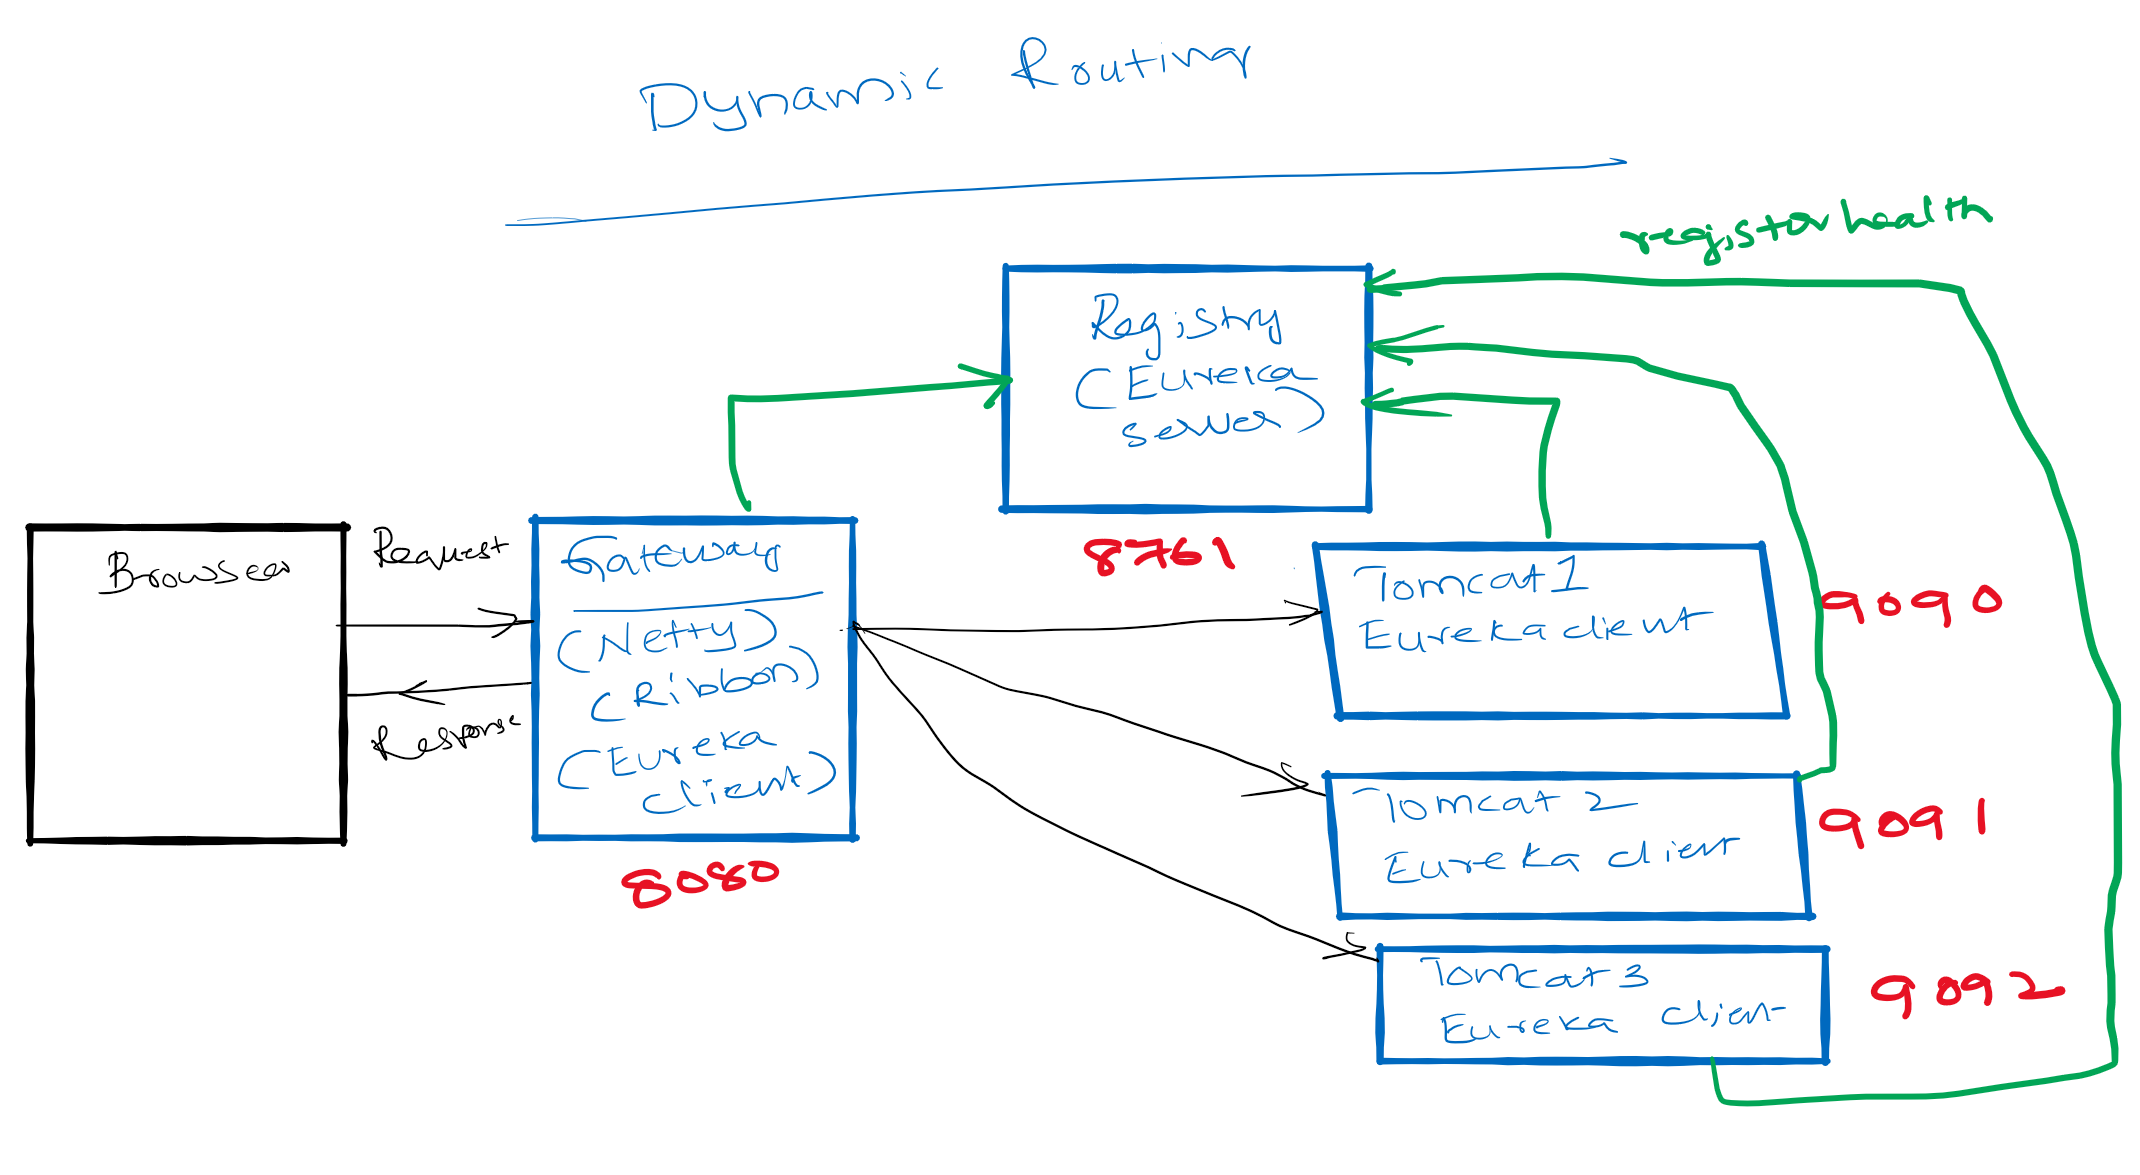 Dynamic Routing
register health
Registry
(Eureka
server)
8761
Browser
Request
Response
Gateway
(Netty)
(Ribbon)
(Eureka
client)
8080
Tomcat 1
Eureka client
9090
Tomcat 2
Eureka client
9091
Tomcat 3
Eureka client
9092